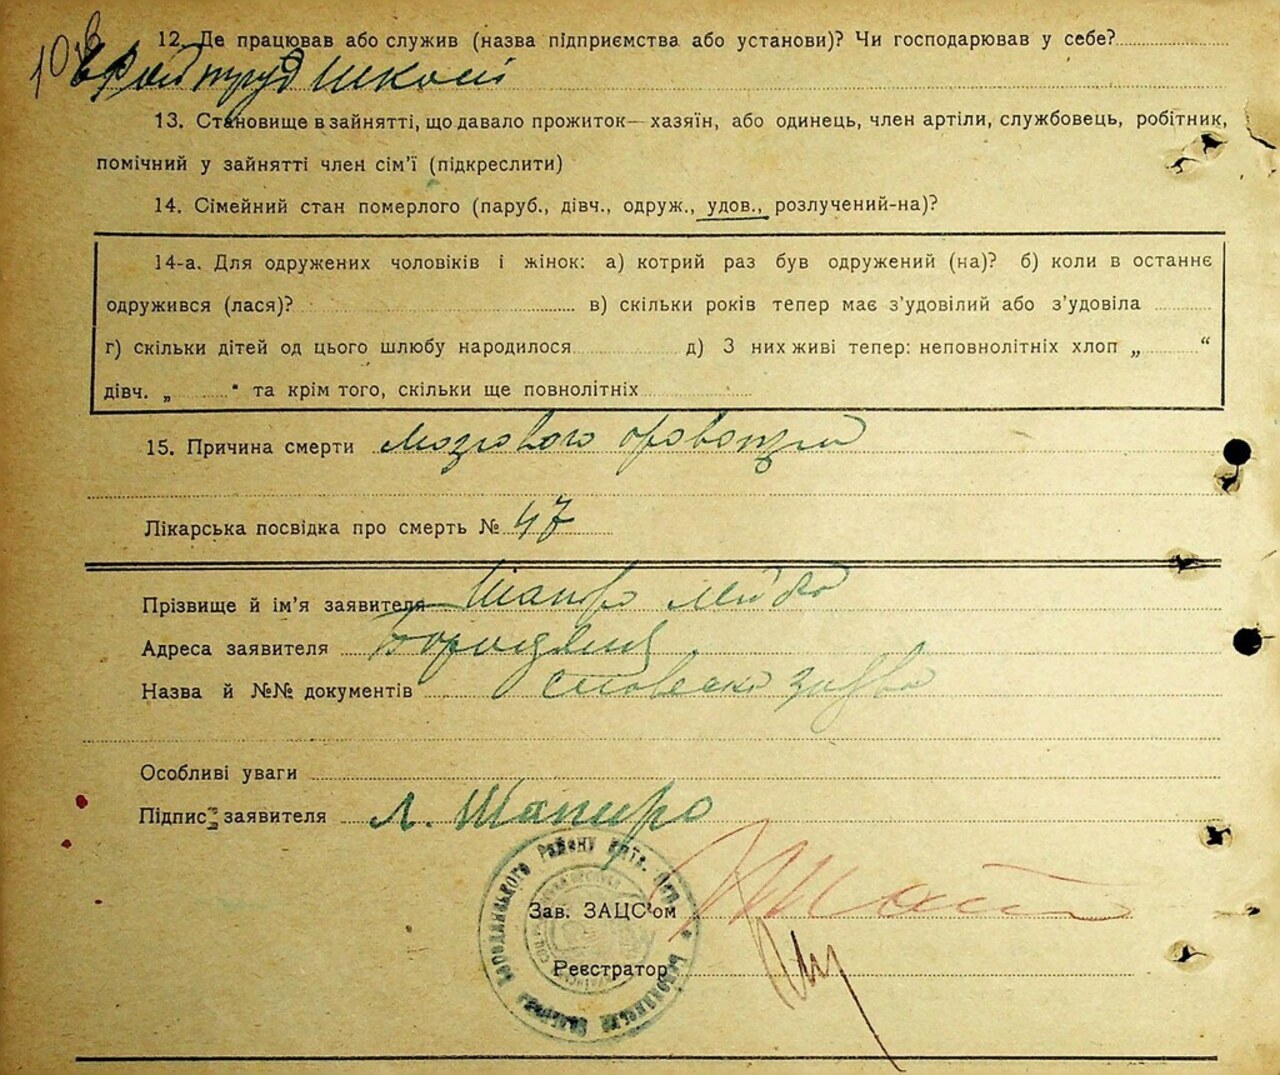 12. Де працював або служив (назва підприємства або установи)? Чи господарював у себе?
школі
13. Становище в зайнятті, що давало прожиток—хазяїн, або одинець, член артіли, службовець, робітник,
помічний у зайнятті член сім'ї (підкреслити)
14. Сімейний стан померлого (паруб., дівч., одруж., удов., розлучений-на)?
14-а. Для одружених чоловіків і жінок: а) котрий раз був одружений (на)? б) коли в останнє
одружився (лася)? в) скільки років тепер має з'удовілий або з'удовіла
г) скільки дітей од цього шлюбу народилося д) З них живі тепер: неповнолітніх хлоп „ “
дівч. „ “ та крім того, скільки ще повнолітніх
15. Причина смерти мозгового
Лікарська посвідка про смерть № 47
Прізвище й ім'я заявителя Шапиро
Адреса заявителя
Назва й №№ документів
Особливі уваги
Підпис заявителя Л. Шапиро
Зав. ЗАЦС'ом
Реєстратор